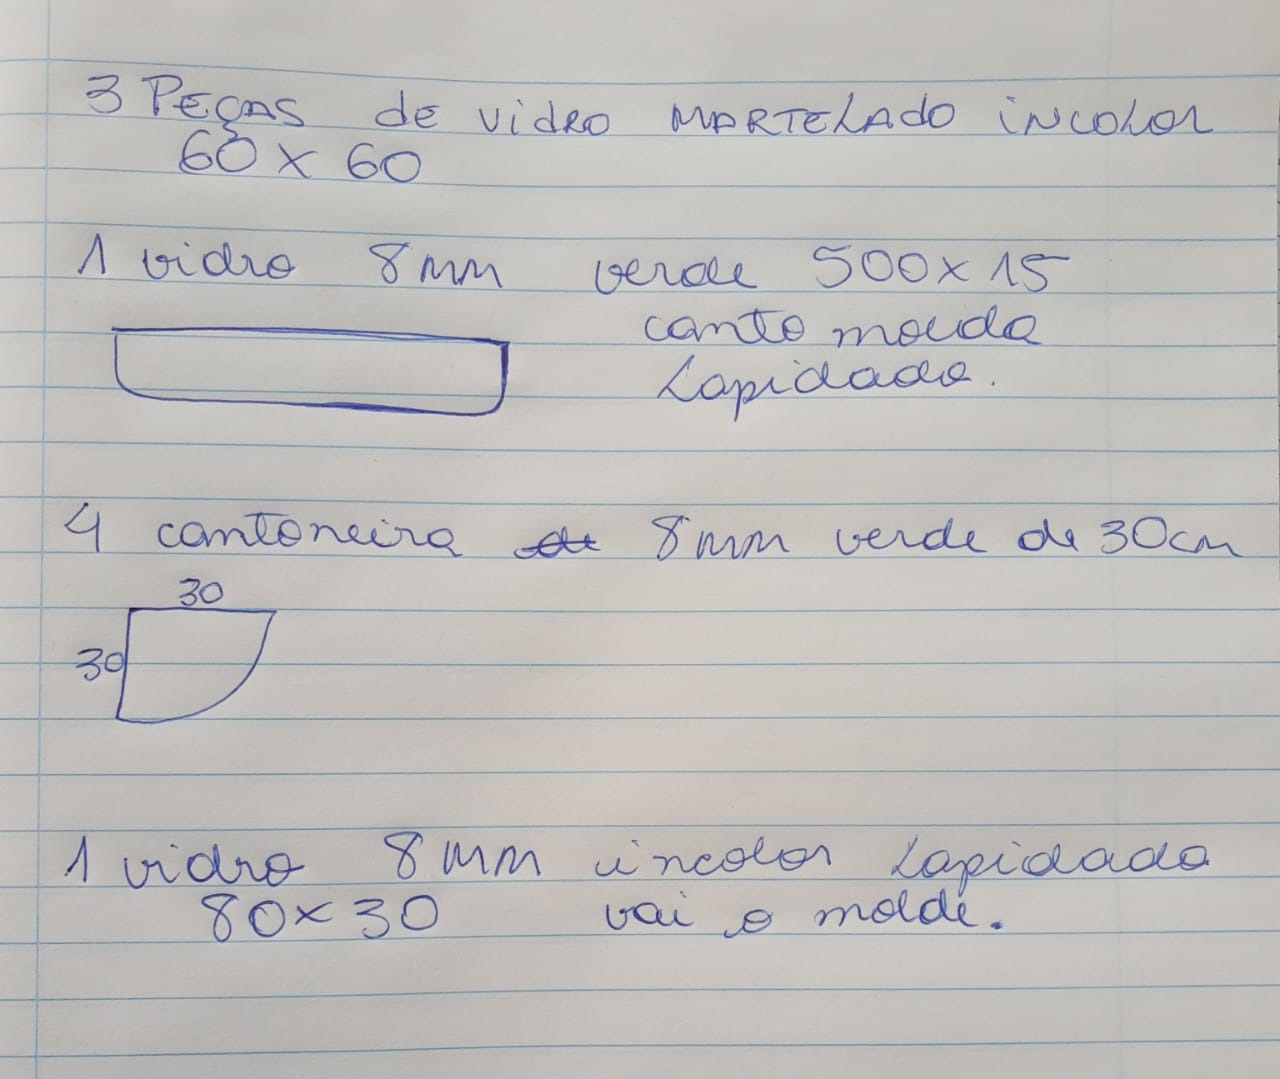 3 PEÇAS de vidro MARTELADO iNCOLOR
60 x 60
1 vidro 8mm verde 500x15
canto moeda
Lapidado.
4 cantoneira 8mm verde de 30cm
30
30
1 vidro 8mm incolor Lapidado
80x30 vai o molde.